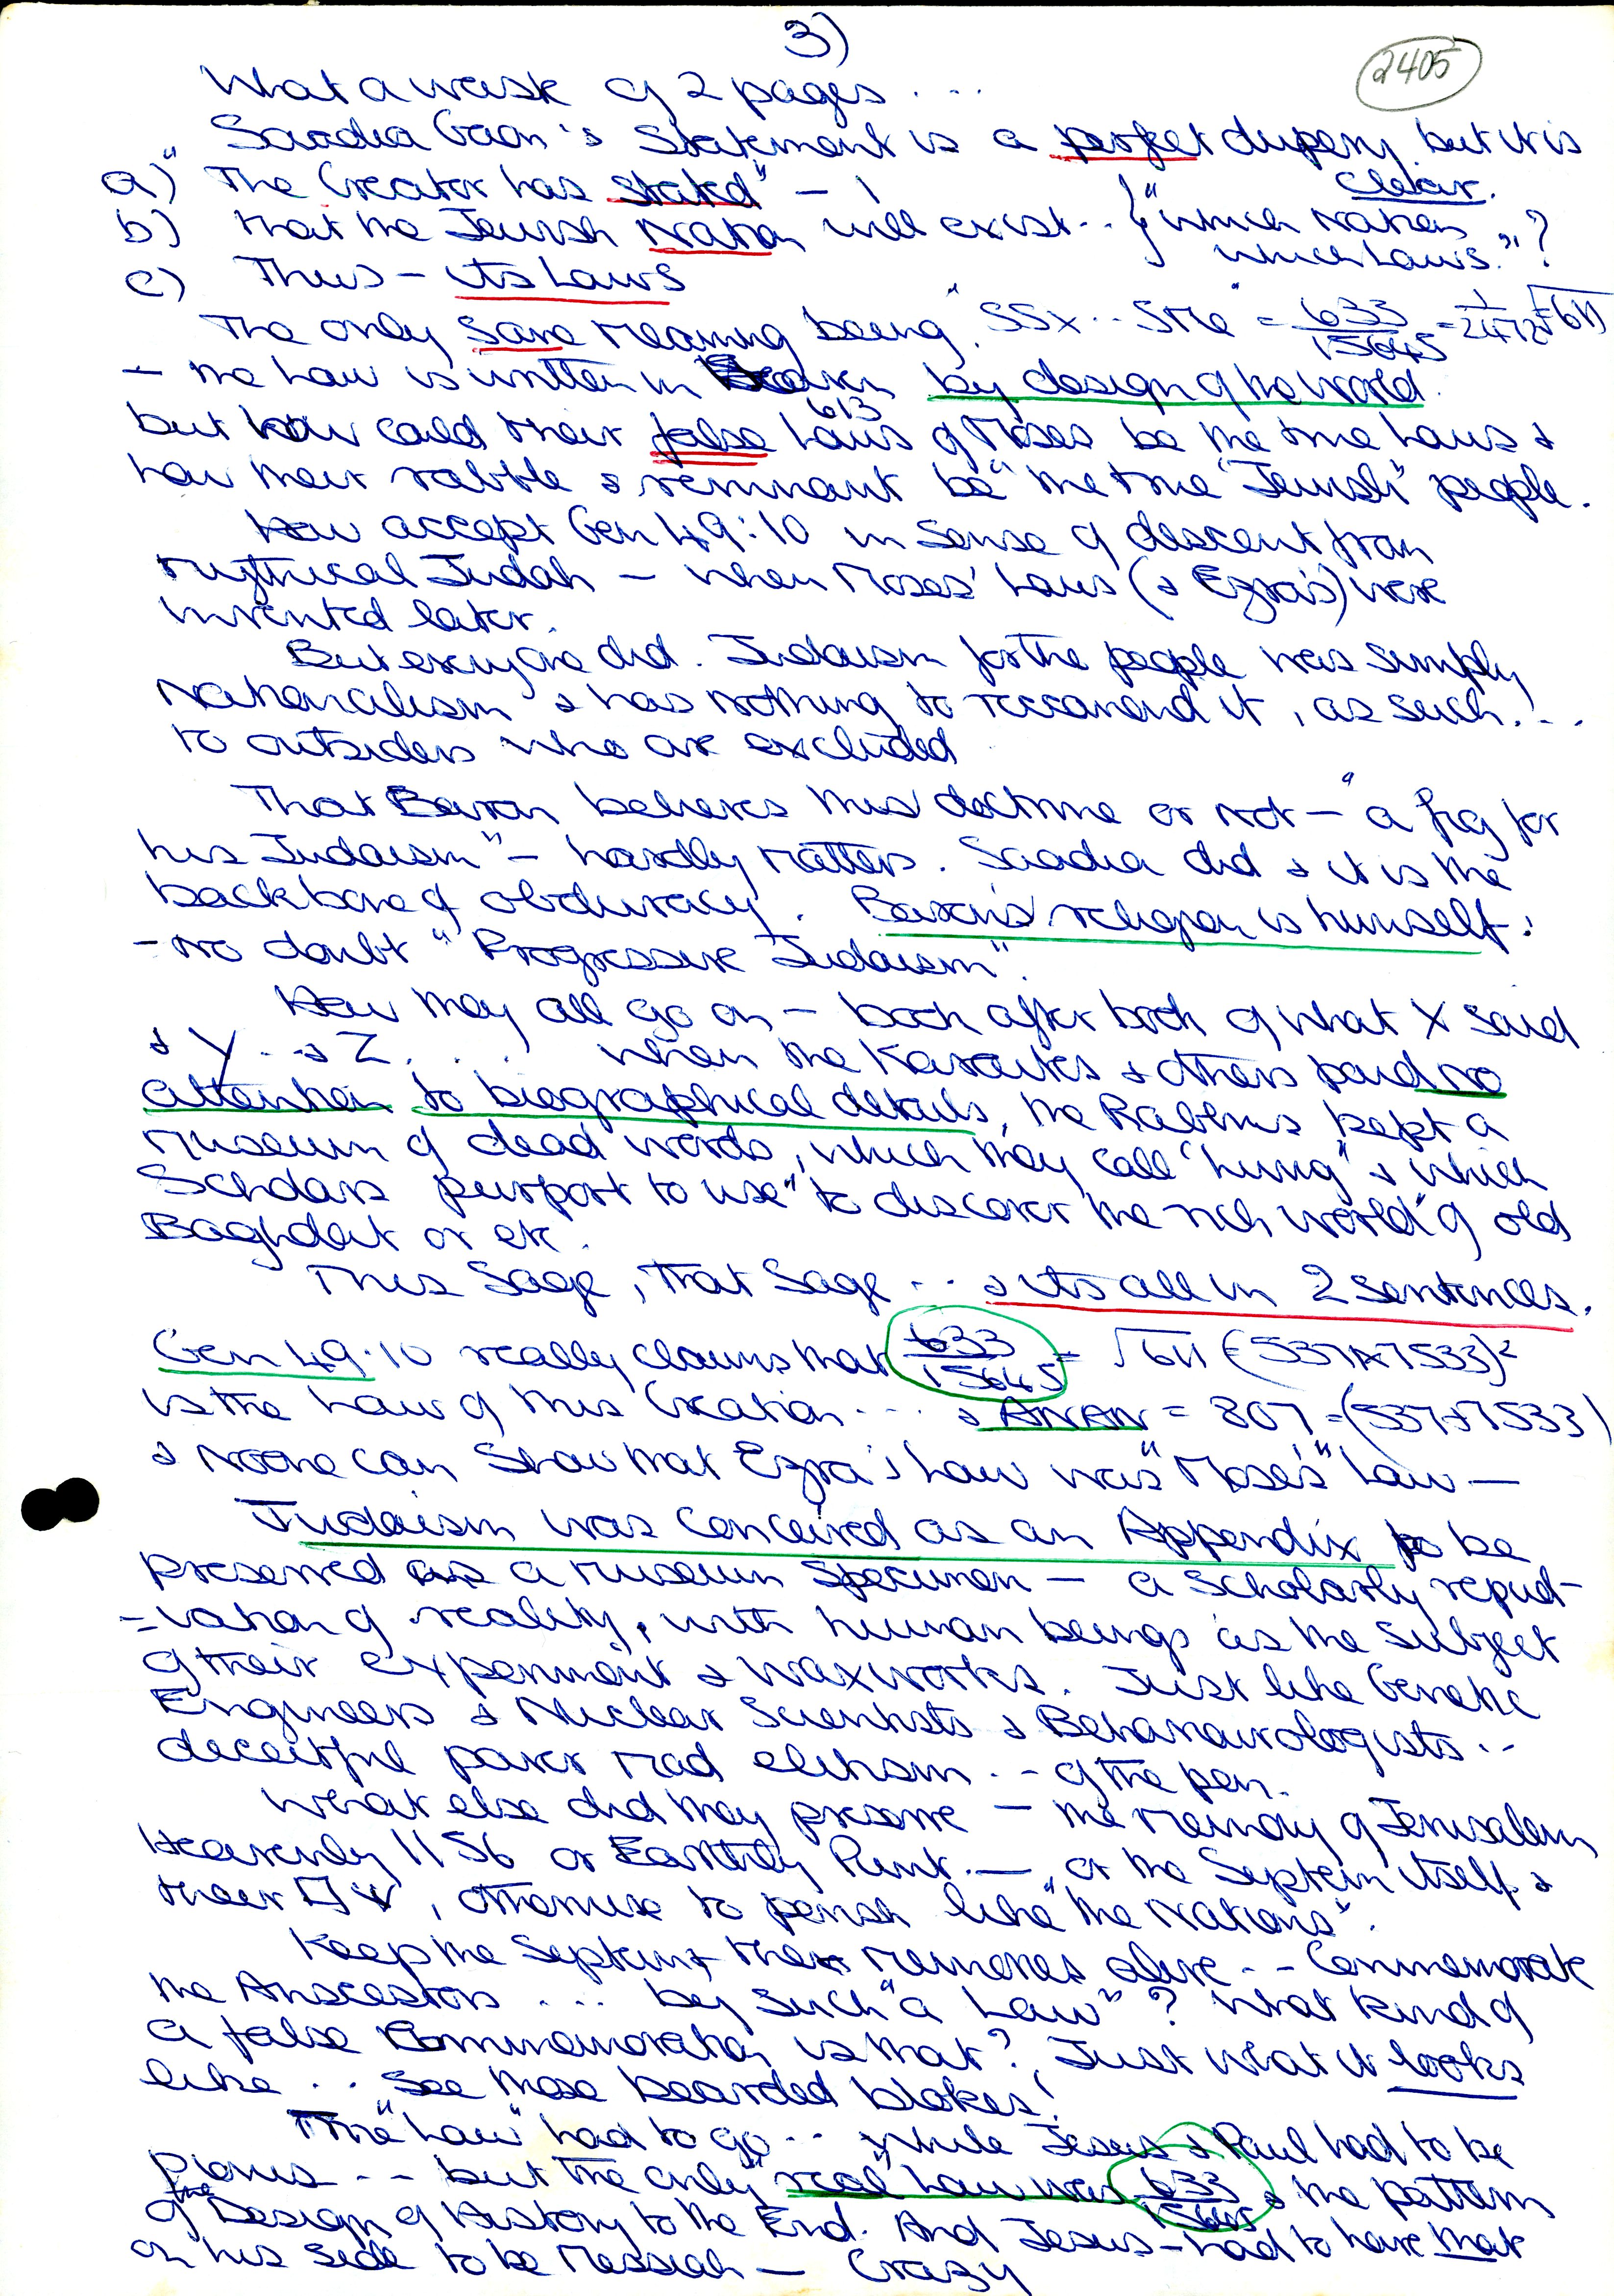 3)
2405
What a waste of 2 pages ...
Saadia Gaon's Statement is a perfect dupery but it is
clear.
a) "The Creator has stated" –
b) that the Jewish Nation will exist .. } "which Nation
which Laws."?
c) Thus – its Laws
The only sane meaning being "SSX .. SMe" = 633/15645 =
– the Law is written in by design of the World.
but how could their false 613 Laws of Moses be the true Laws &
how their rabble & remnant be "the true "Jewish" people.
How accept Gen 49:10 in sense of descent from
mythical Judah – when Moses' Laws (& Ezra's) were
invented later.
But everyone did. Judaism for the people was simply
Nationalism & has nothing to reccomend it, as such!..
to outsiders who are excluded
That Baron believes this doctrine or not – "a fig for
his Judaism" – hardly matters. Saadia did & it is the
backbone of obduracy. Baron's religion is himself!
– no doubt "Progressive Judaism".
How they all go on – book after book of what X said
& Y .. & Z .... when the Karaites & others paid no
attention to biographical details, the Rabbins kept a
museum of dead words, which they call "living" & which
Scholars purport to use "to discover the rich world" of old
Baghdat or etc.
This Sage, that Sage ... & its all in 2 sentences.
Gen 49.10 really claims that 633/15645 = √611 (537 x 7533)²
is the Law of this Creation .... & ANAN = 807 = (537+7533)
& noone can show that Ezra's Law was "Moses'" Law –
Judaism was conceived as an Appendix to be
preserved as a museum specimen – a scholarly repud-
=iation of reality, with human beings as the subject
of their experiment & waxworks. Just like Genetic
Engineers & Nuclear Scientists & Behaviourologists ..
deceitful power mad elitism .. of the pen.
What else did they preserve – the memory of Jerusalem
Heavenly 1156 or Earthly – or the Septein itself &
their , otherwise to perish like "the Nations".
Keep the Septein & their memories alive .. Commemorate
the Anscestors ... by such "a Law"? What kind of
a false Commemoration is that? Just what it looks
like .. see those bearded blokes!
The "Law" had to go .. while Jesus & Paul had to be
pious .. but the only "real" Law was 633/15645 & the pattern
of the Design of History to the End. And Jesus – had to have that
on his side to be Messiah – Crazy